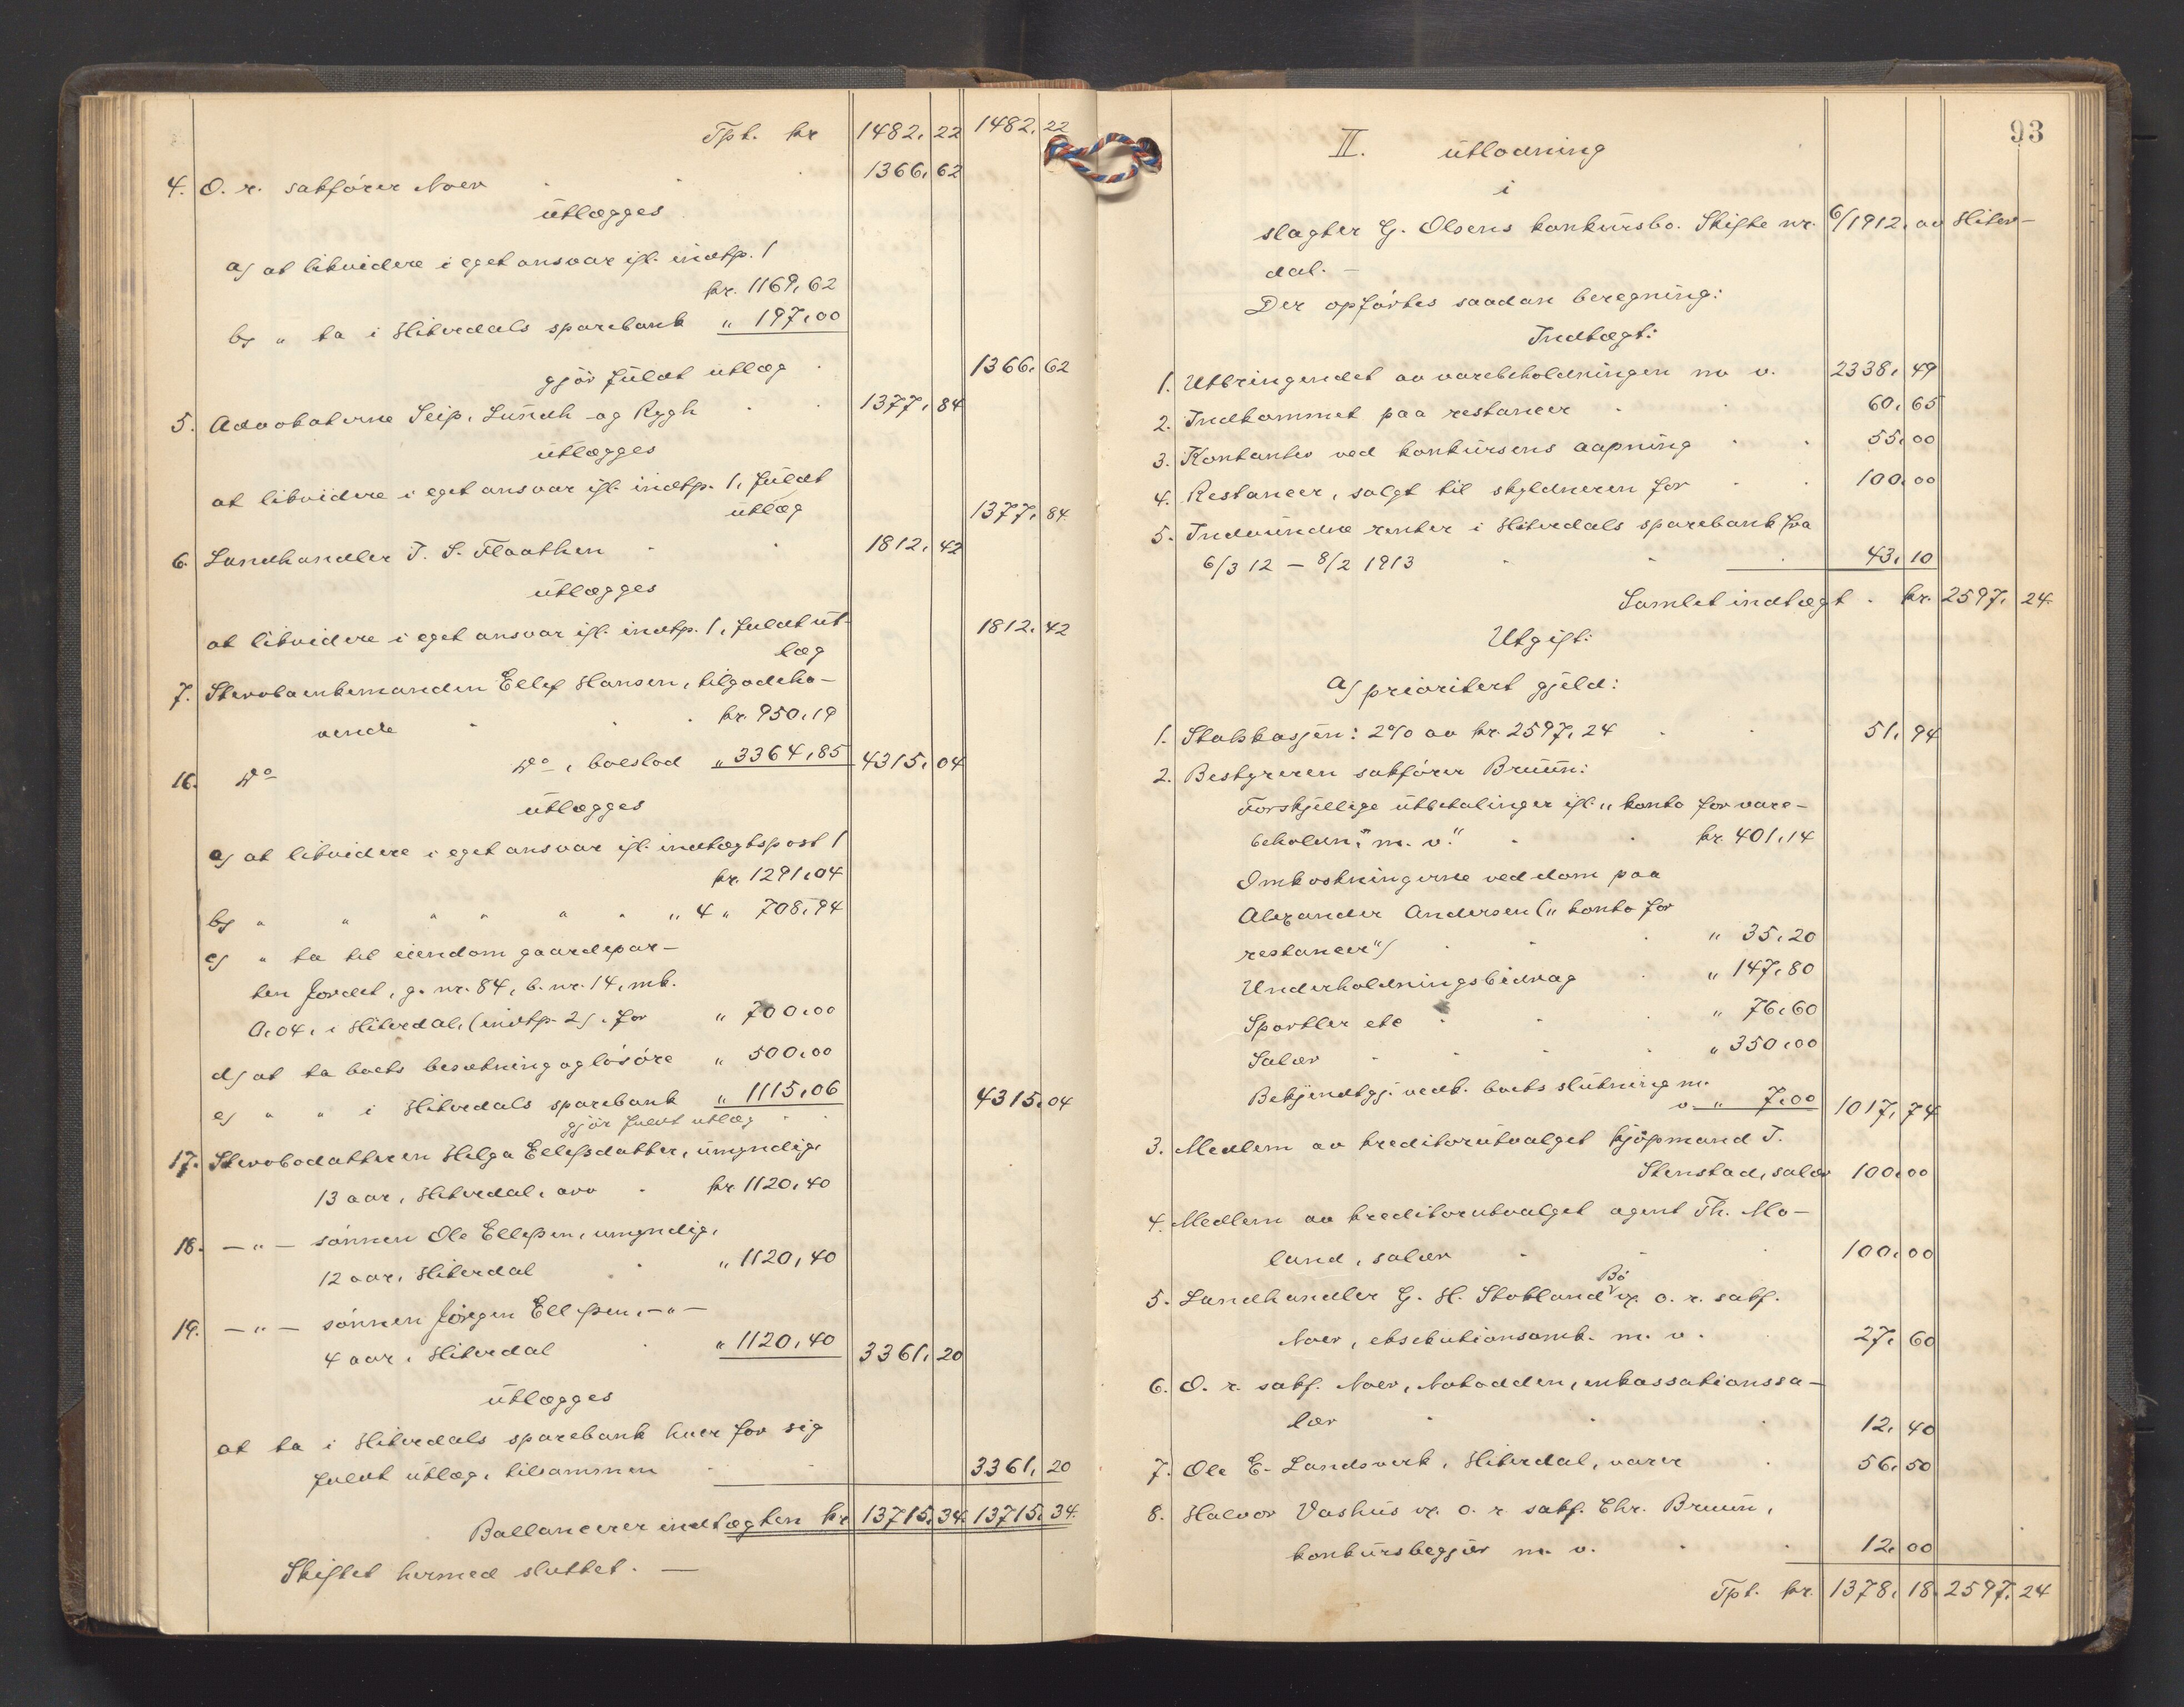 Tpt. kr 1482,22 1482,22
4. O. r. sakfører Noer . . . 1366,62
utlægges
a) at likvidere i eget ansvar ifl. indtp. 1
kr. 1169,62
b) " ta i Hiterdals sparebank " 197,00
gjør fuldt utlæg . 1366,62
5. Advokaterne Seip, Lundh og Rygh . . 1377,84
utlægges
at likvidere i eget ansvar ifl. indtp. 1, fuldt
utlæg 1377,84
6. Landhandler T. S. Flaathen . . 1812,42
utlægges
at likvidere i eget ansvar ifl. indtp. 1, fuldt ut-
læg 1812,42
7. Stervboenkemanden Ellef Hansen, tilgodeha-
vende . . . kr. 950,19
16. Do Do, boeslod " 3364,85 4315,04
utlægges
a) at likvidere i eget ansvar ifl. indtægtspost 1
kr. 1291,04
b) " " " " " " " 4 " 708,94
c) " ta til eiendom gaardepar-
ten Jordet, g. nr. 84, b. nr. 14, mk.
0,04, i Hiterdal, (indtp. 2), for " 700,00
d) at ta boets besætning og løsøre " 500,00
e) " " i Hiterdals sparebank " 1115,06 4315,04
gjør fuldt utlæg . .
17. Stervbodatteren Helga Ellefsdatter, umyndig,
13 aar, Hiterdal, arv . kr 1120,40
18. — " — sønnen Ole Ellefsen, umyndig,
12 aar, Hiterdal . " 1120,40
19. — " — sønnen Jørgen Ellefsen, — " —
4 aar, Hiterdal . " 1120,40 3361,20
utlægges
at ta i Hiterdals sparebank hver for sig
fuldt utlæg, tilsammen . . 3361,20
Ballancerer indtægten kr 13715,34 13715,34
Skiftet hermed sluttet. —
93
II. utlodning
i
slagter G. Olsens konkursbo. Skifte nr. 6/1912, av Hiter-
dal. —
Der opførtes saadan beregning:
Indtægt:
1. Utbringendet av varebeholdningen m v. 2338,49
2. Indkommet paa restancer . . 60,65
3. Kontanter ved konkursens aapning . . 55,00
4. Restancer, solgt til skyldneren for . . 100,00
5. Indvundne renter i Hiterdals sparebank fra
6/3 12 — 8/2 1913 . . . 43,10
Samlet indtægt . kr. 2597,24
Utgift:
a) prioritert gjeld:
1. Statskassen: 2% av kr. 2597,24 . . 51,94
2. Bestyreren sakfører Bruun:
Forskjellige utbetalinger ifl. " konto for vare-
beholdn." m. v." . . kr. 401,14
Omkostningerne ved dom paa
Alexander Andersen (" konto for
restancer") . . . " 35,20
Underholdningsbidrag . " 147,80
Sportler etc . . . " 76,60
Salær . . . . " 350,00
Bekjendtgj. vedk. boets slutning m.
v. " 7,00 1017,74
3. Medlem av kreditorutvalget kjøpmand T.
Stenstad, salær 100,00
4. Medlem av kreditorutvalget agent Th. Mo-
land, salær . . . 100,00
5. Landhandler G. H. Stokland Bø v. o. r. sakf.
Noer, eksekutionsomk. m. v. . 27,60
6. O. r. sakf. Noer, Notodden, inkassationssa-
lær . . . 12,40
7. Ole E. Landsverk, Hiterdal, varer . 56,50
8. Halvor Vashus v. o. r sakf. Chr. Bruun,
konkursbegjær m. v. . . 12,00
Tpt. kr. 1378,18 2597,24